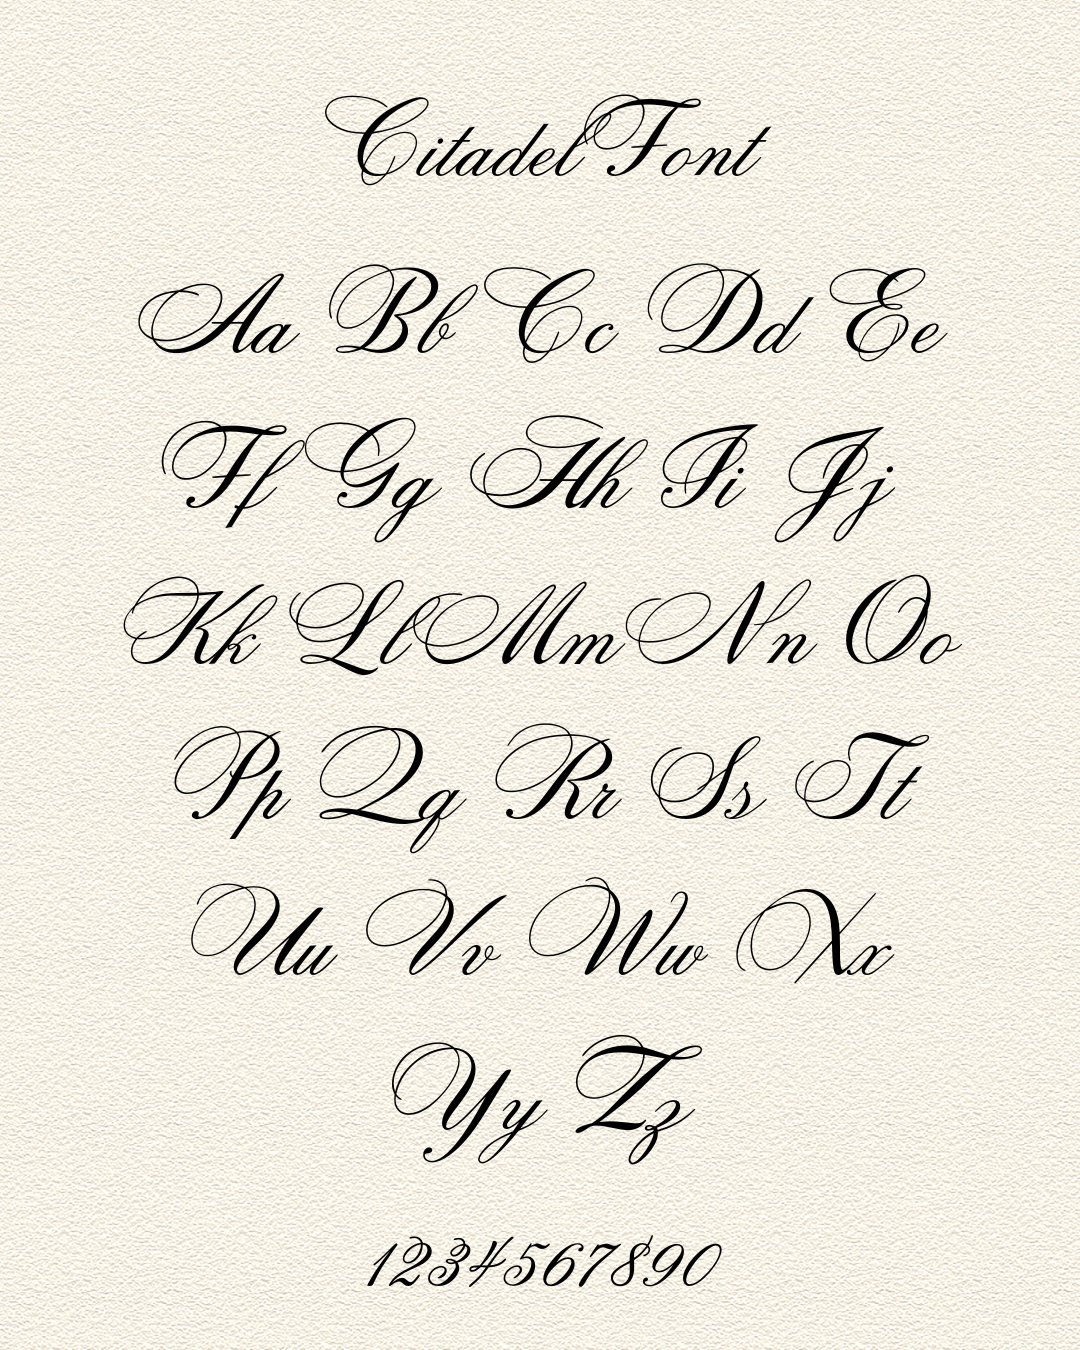 Citadel Font
Aa Bb Cc Dd Ee
Ff Gg Hh Ii Jj
Kk Ll Mm Nn Oo
Pp Qq Rr Ss Tt
Uu Vv Ww Xx
Yy Zz
1234567890